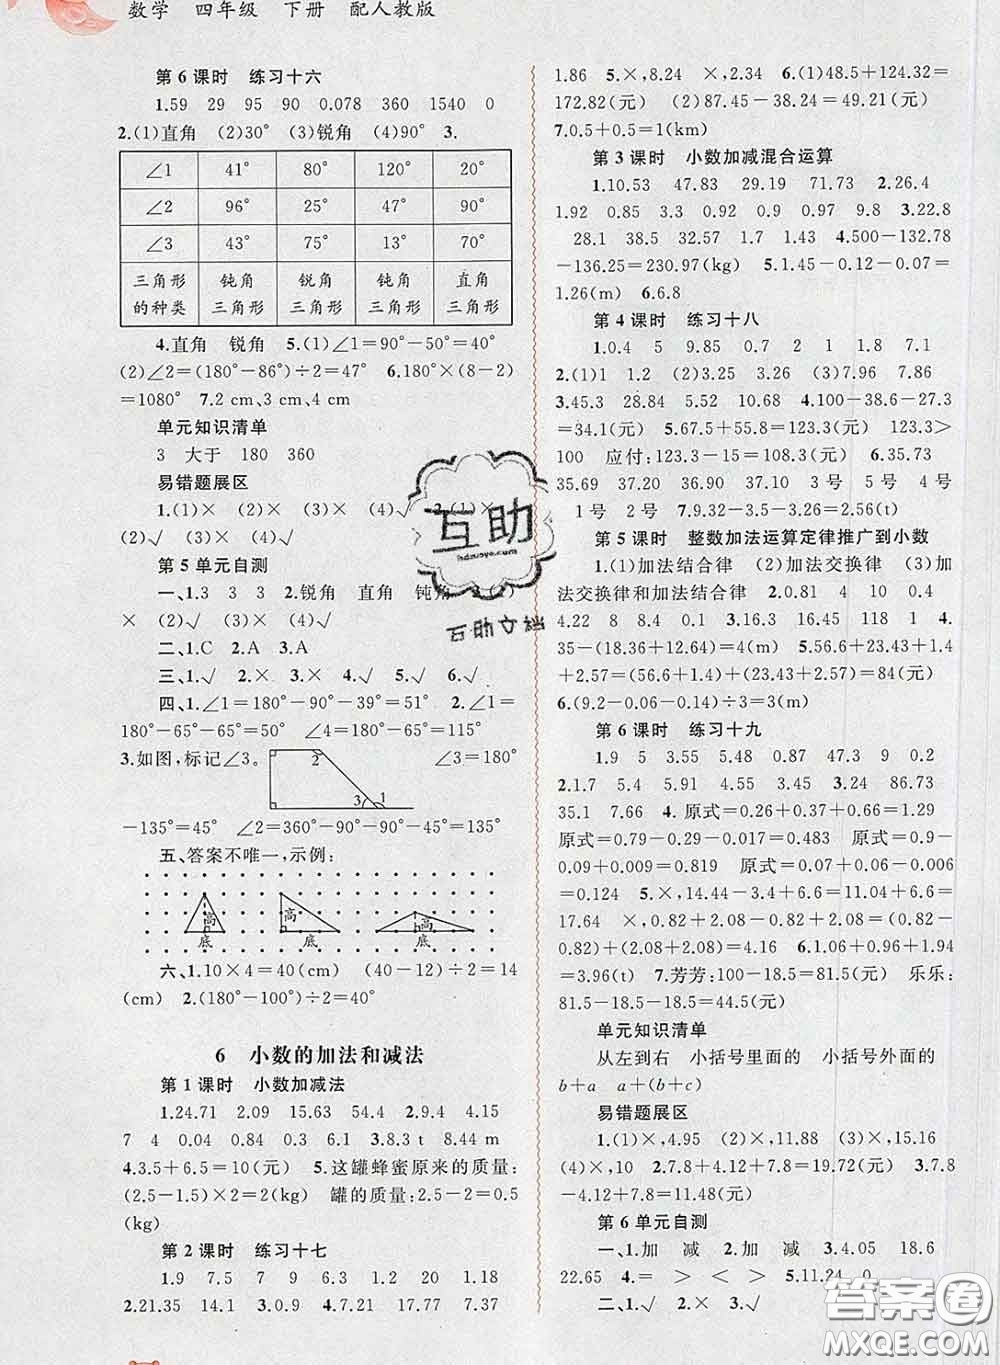 数学 四年级 下册 配人教版
第6课时 练习十六
1.59 29 95 90 0.078 360 1540 0
2.(1)直角 (2)30° (3)锐角 (4)90° 3.
∠1 41° 80° 120° 20°
∠2 96° 25° 47° 90°
∠3 43° 75° 13° 70°
三角形的种类 钝角三角形 锐角三角形 钝角三角形 直角三角形
4.直角 锐角 5.(1)∠1=90°-50°=40°
(2)∠2=(180°-86°)÷2=47° 6.180°×(8-2)
=1080° 7.2 cm、3 cm、4 cm
单元知识清单
3 大于 180 360
易错题展区
1.(1)× (2)× (3)× (4)√ 2.(1)×
(2)√ (3)√ (4)√
第5单元自测
一、1.3 3 3 2.锐角 直角 钝角 3.(1)
× (2)√ (3)× (4)√
二、1.C 2.A 3.A
三、1.√ 2.× 3.× 4.√ 5.√ 6.√
四、1.∠1=180°-90°-39°=51° 2.∠1=
180°-65°-65°=50° ∠4=180°-65°=115°
3.如图,标记∠3。 2 3 1 ∠3=180°
-135°=45° ∠2=360°-90°-90°-45°=135°
五、答案不唯一,示例:
高 底 高 底 高 底
六、1.10×4=40(cm) (40-12)÷2=14
(cm) 2.(180°-100°)÷2=40°
6 小数的加法和减法
第1课时 小数加减法
1.24.71 2.09 15.63 54.4 2.9.4 4.15
7 4 0.04 0.84 0.3 6.1 3.8.3 t 8.44 m
4.3.5+6.5=10(元) 5.这罐蜂蜜原来的质量:
(2.5-1.5)×2=2(kg) 罐的质量:2.5-2=0.5
(kg)
第2课时 练习十七
1.9 7.5 7 9 6.3 1.2 0.1 1.18
2.21.35 14.1 3.0.9 4.7.21 17.77 7.37
1.86 5.×,8.24 ×,2.34 6.(1)48.5+124.32=
172.82(元) (2)87.45-38.24=49.21(元)
7.0.5+0.5=1(km)
第3课时 小数加减混合运算
1.10.53 47.83 29.19 71.73 2.26.4
1.92 0.85 3.3 0.92 0.07 0.97 9.8 3.22.8
28.1 38.5 32.57 1.7 1.43 4.500-132.78
-136.25=230.97(kg) 5.1.45-0.12-0.07=
1.26(m) 6.6.8
第4课时 练习十八
1.0.4 5 9.85 0.7 2 1 1.8 7.1
2.(1)1 1.2 (2)3.25 3.26 (3)7.96 7.86
3.45.3 28.84 5.52 10.68 4.100-38.6-27.3
=34.1(元) 5.67.5+55.8=123.3(元) 123.3>
100 应付:123.3-15=108.3(元) 6.35.73
35.69 37.20 36.90 35.70 3号 5号 4号
1号 2号 7.9.5-3.2-3.2-0.54=2.56(t)
第5课时 整数加法运算定律推广到小数
1.(1)加法结合律 (2)加法交换律 (3)加
法交换律和加法结合律 2.0.81 4 10 0.4
4.22 8 8.4 0.1 3.16.45 118 1 4.
35-(18.36+12.64)=4(m) 5.56.6+23.43+1.4
+2.57=(56.6+1.4)+(23.43+2.57)=84(元)
6.(9.2-0.06-0.14)÷3=3(m)
第6课时 练习十九
1.9 5 3.55 5.48 0.87 47.3 9 0.2
2.1.7 5.4 5.91 4.55 3.242 3.24 86.73
35.1 7.66 4.原式=0.26+0.37+0.66=1.29
原式=0.79-0.29-0.017=0.483 原式=0.9-
0.09+0.009=0.819 原式=0.07+0.06-0.006
=0.124 5.×,14.44-3.4+6.6=11.04+6.6=
17.64 ×,0.92+2.08-0.92+2.08=(0.92-
0.92)+(2.08+2.08)=4.16 6.1.06+0.96+1.94
=3.96(t) 7.芳芳:100-18.5=81.5(元) 乐乐:
81.5-18.5-18.5=44.5(元)
单元知识清单
从左到右 小括号里面的 小括号外面的
b+a a+(b+c)
易错题展区
1.(1)×,4.95 (2)×,11.88 (3)×,45.15
(4)×,10 2.7.8+4.12+7.8=19.72(元) 3.7.8
-4.12+7.8=11.48(元)
第6单元自测
一、1.加 减 2.加 减 3.4.05 18.6
22.65 4.= > < > 5.11.24 0
二、1.√ 2.× 3.√
互助
hdzuoye.com
互助文档
答案圈
MXQE.COM